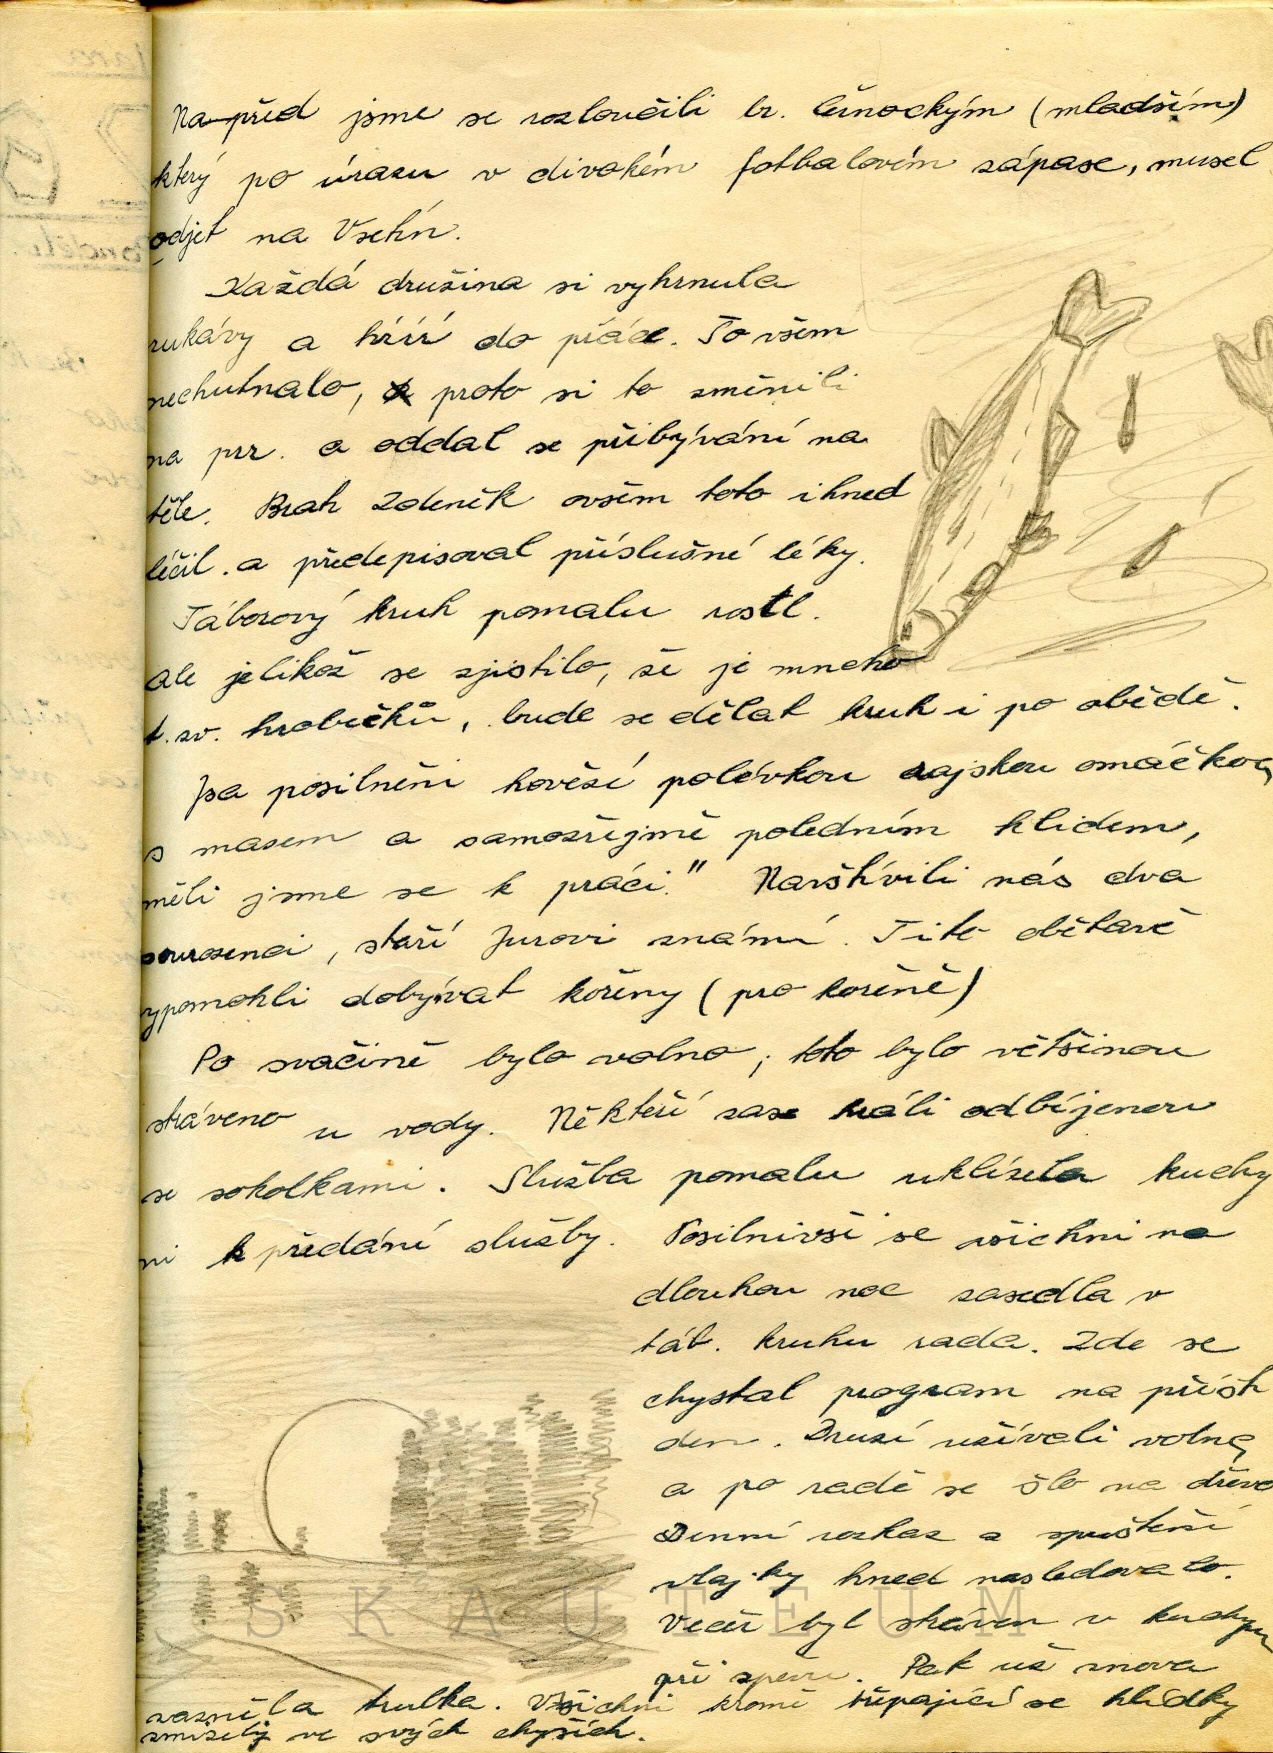 Napřed jsme se rozloučili br. Černockým (mladším)
který po úrazu v divokém fotbalovém zápase, musel
odjet na Vsetín.
Každá družina si vyhrnula
rukávy a hííí do práce. To všem
nechutnalo, proto si to změnili
na prr. a oddal se přibývání na
těle. Bratr Zdeněk ovšem toto ihned
léčil. a předepisoval příslušné léky.
Táborový kruh pomalu rostl.
Ale jelikož se zjistilo, že je mnoho
t.zv. hrobečků, bude se dělat kruh i po obědě.
Jsa posilněni hovězí polévkou rajskou omáčkou
s masem a samozřejmě poledním klidem,
měli jsme se k práci." Navštívili nás dva
sourozenci, staří Jurovi známí. Tito
vypomohli dobývat kořeny (pro kořeně)
Po svačině bylo volno, toto bylo většinou
stráveno u vody. Někteří zase hráli odbíjenou
se sokolkami. Služba pomalu uklízela kuchy
ni k předání služby. Posilnivši se všichni na
dlouhou noc zasedla v
táb. kruhu rada. Zde se
chystal program na příšt
den. Druzí užívali volna
a po radě se šlo na dřevo
Denní rozkaz a spuštění
vlajky hned následovalo.
Večer byl stráven v kuchyni
při zpěvu. Pak už znova
zazněla trubka. Všichni kromě třepající se hlídky
zmizely ve svých chyších.
SKAUTEUM